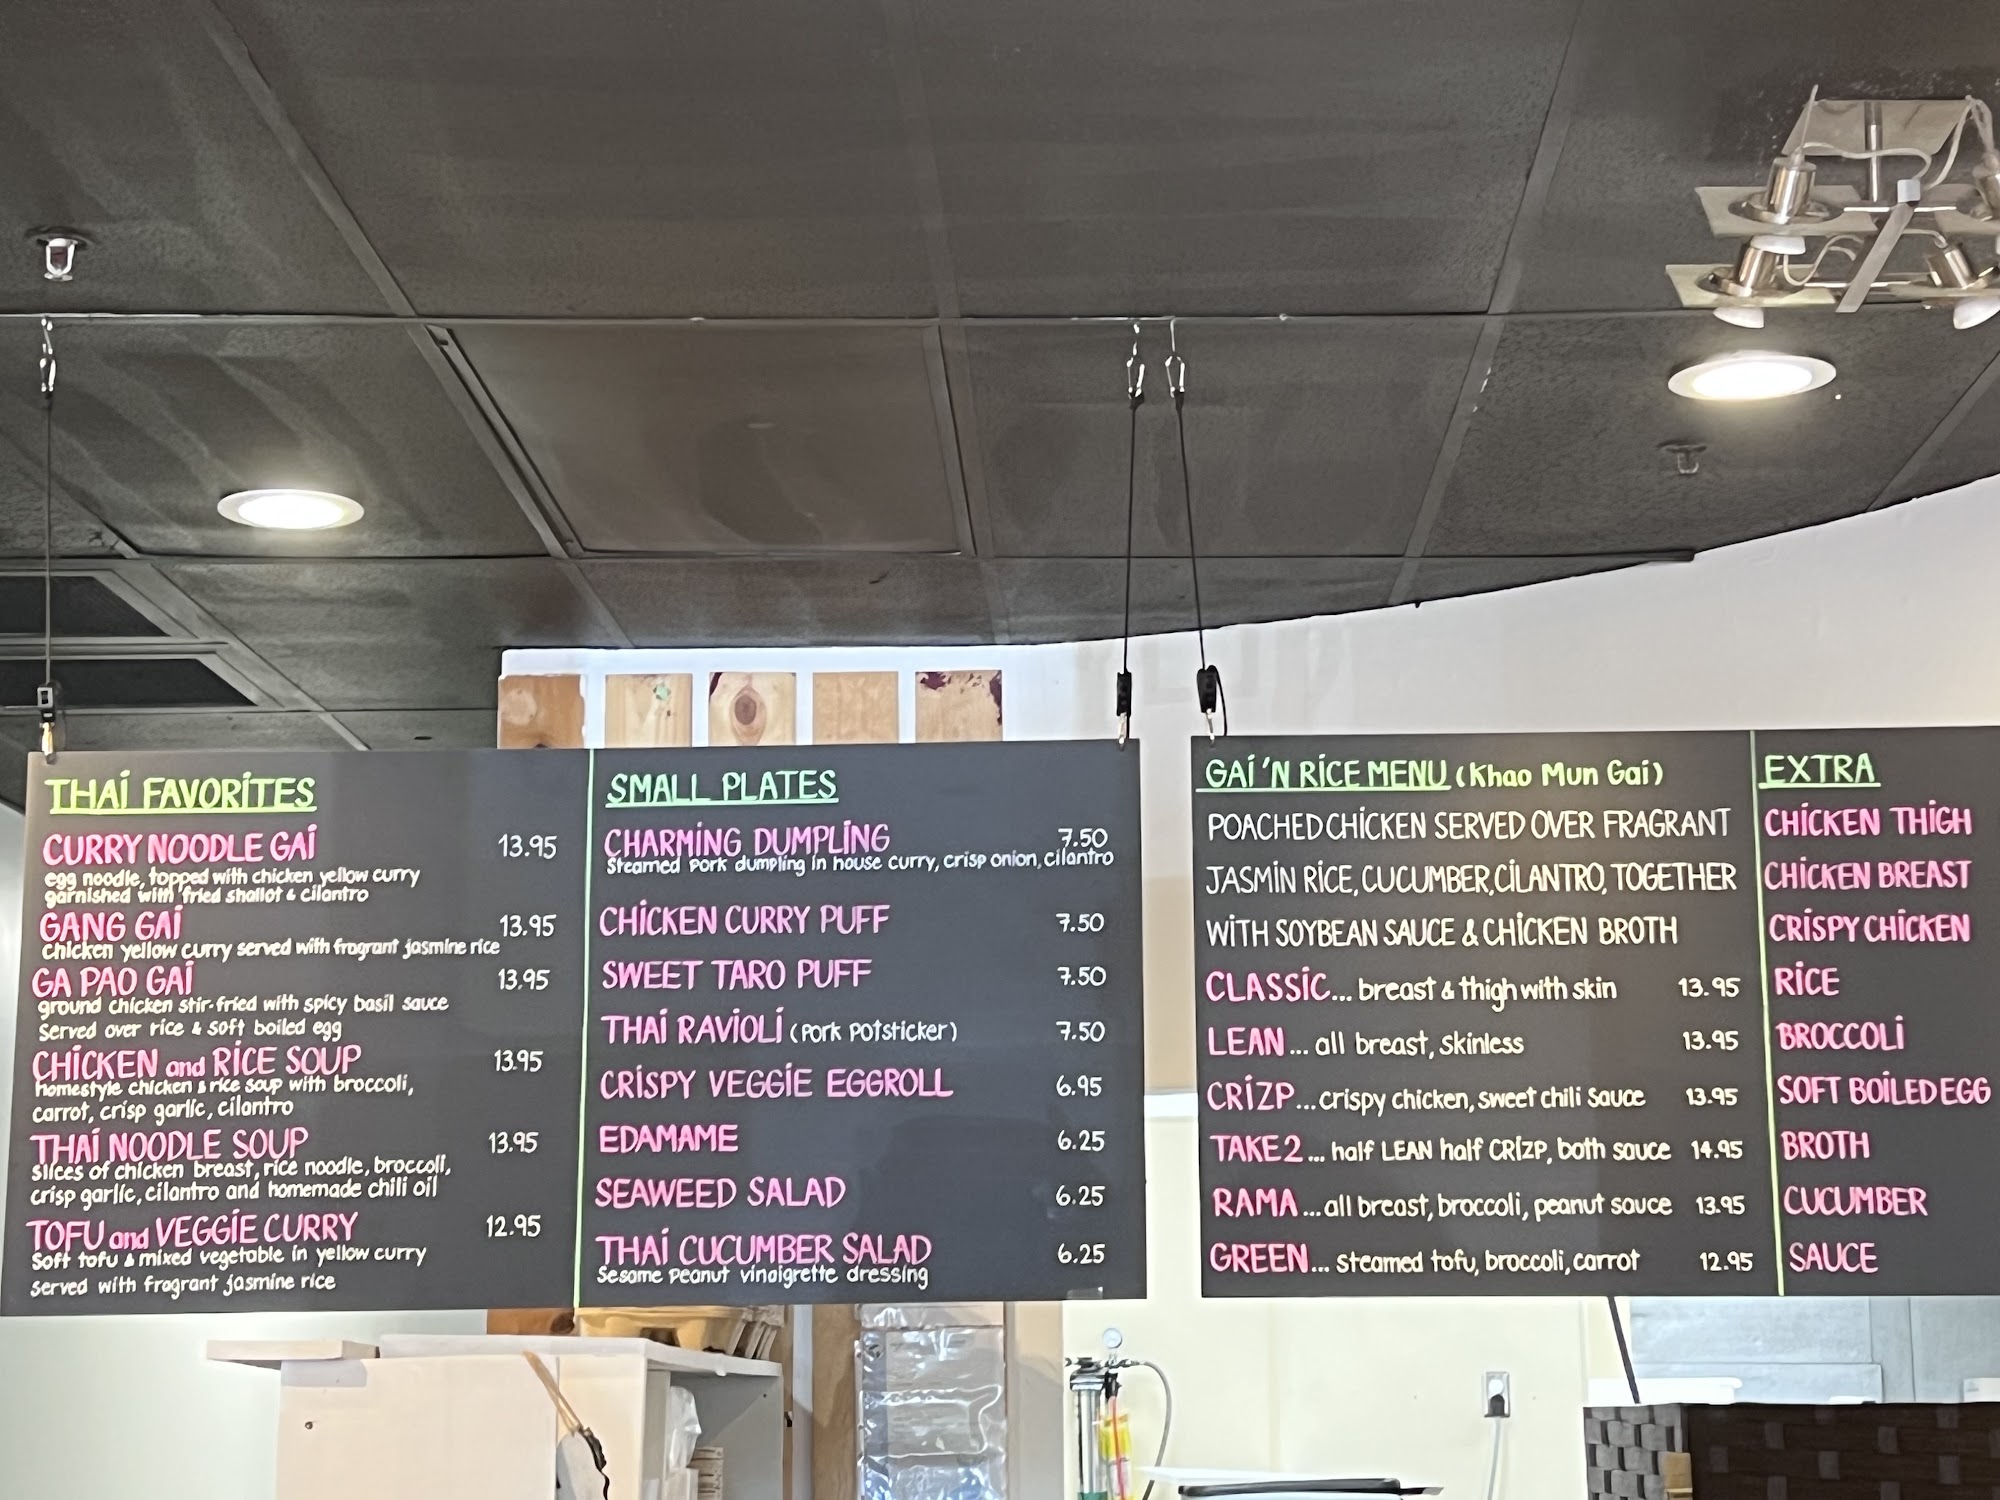 THAI FAVORITES
CURRY NOODLE GAI 13.95
egg noodle, topped with chicken yellow curry
garnished with fried shallot & cilantro
GANG GAI 13.95
chicken yellow curry served with fragrant jasmine rice
GA PAO GAI 13.95
ground chicken stir-fried with spicy basil sauce
Served over rice & soft boiled egg
CHICKEN and RICE SOUP 13.95
homestyle chicken & rice soup with broccoli,
carrot, crisp garlic, cilantro
THAI NOODLE SOUP 13.95
slices of chicken breast, rice noodle, broccoli,
crisp garlic, cilantro and homemade chili oil
TOFU and VEGGIE CURRY 12.95
Soft tofu & mixed vegetable in yellow curry
Served with fragrant jasmine rice
SMALL PLATES
CHARMING DUMPLING 7.50
Steamed pork dumpling in house curry, crisp onion, cilantro
CHICKEN CURRY PUFF 7.50
SWEET TARO PUFF 7.50
THAI RAVIOLI (Pork Potsticker) 7.50
CRISPY VEGGIE EGGROLL 6.95
EDAMAME 6.25
SEAWEED SALAD 6.25
THAI CUCUMBER SALAD 6.25
Sesame Peanut vinaigrette dressing
GAI 'N RICE MENU (Khao Mun Gai)
POACHED CHICKEN SERVED OVER FRAGRANT
JASMIN RICE, CUCUMBER, CILANTRO, TOGETHER
WITH SOYBEAN SAUCE & CHICKEN BROTH
CLASSIC... breast & thigh with skin 13.95
LEAN... all breast, skinless 13.95
CRIZP... crispy chicken, sweet chili sauce 13.95
TAKE 2... half LEAN half CRIZP, both sauce 14.95
RAMA... all breast, broccoli, peanut sauce 13.95
GREEN... steamed tofu, broccoli, carrot 12.95
EXTRA
CHICKEN THIGH
CHICKEN BREAST
CRISPY CHICKEN
RICE
BROCCOLI
SOFT BOILED EGG
BROTH
CUCUMBER
SAUCE